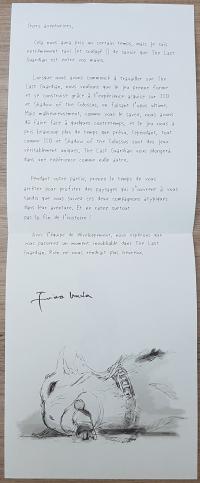 Chers aventuriers,
Cela nous aura pris un certain temps, mais je suis
extrêmement ravi (et soulagé !) de savoir que The Last
Guardian est entre vos mains.
Lorsque nous avons commencé à travailler sur The
Last Guardian, nous voulions que le jeu prenne forme
et se construise grâce à l'expérience acquise sur ICO
et Shadow of the Colossus, en faisant
Mais malheureusement, comme vous le savez, nous avons
dû faire face à quelques contretemps, et le jeu nous a
pris beaucoup plus de temps que prévu. Cependant, tout
comme ICO et Shadow of the Colossus sont des jeux
véritablement uniques, The Last Guardian vous plongera
dans une expérience comme nulle autre.
Pendant votre partie, prenez le temps de vous
arrêter pour profiter des paysages qui s'ouvrent à vous
tandis que vous suivez ces deux compagnons atypiques
dans leur aventure. Et ne ratez surtout
pas la fin de l'histoire !
Avec l'équipe de développement, nous espérons que
vous passerez un moment inoubliable dans The Last
Guardian. Rien ne nous rendrait plus heureux.